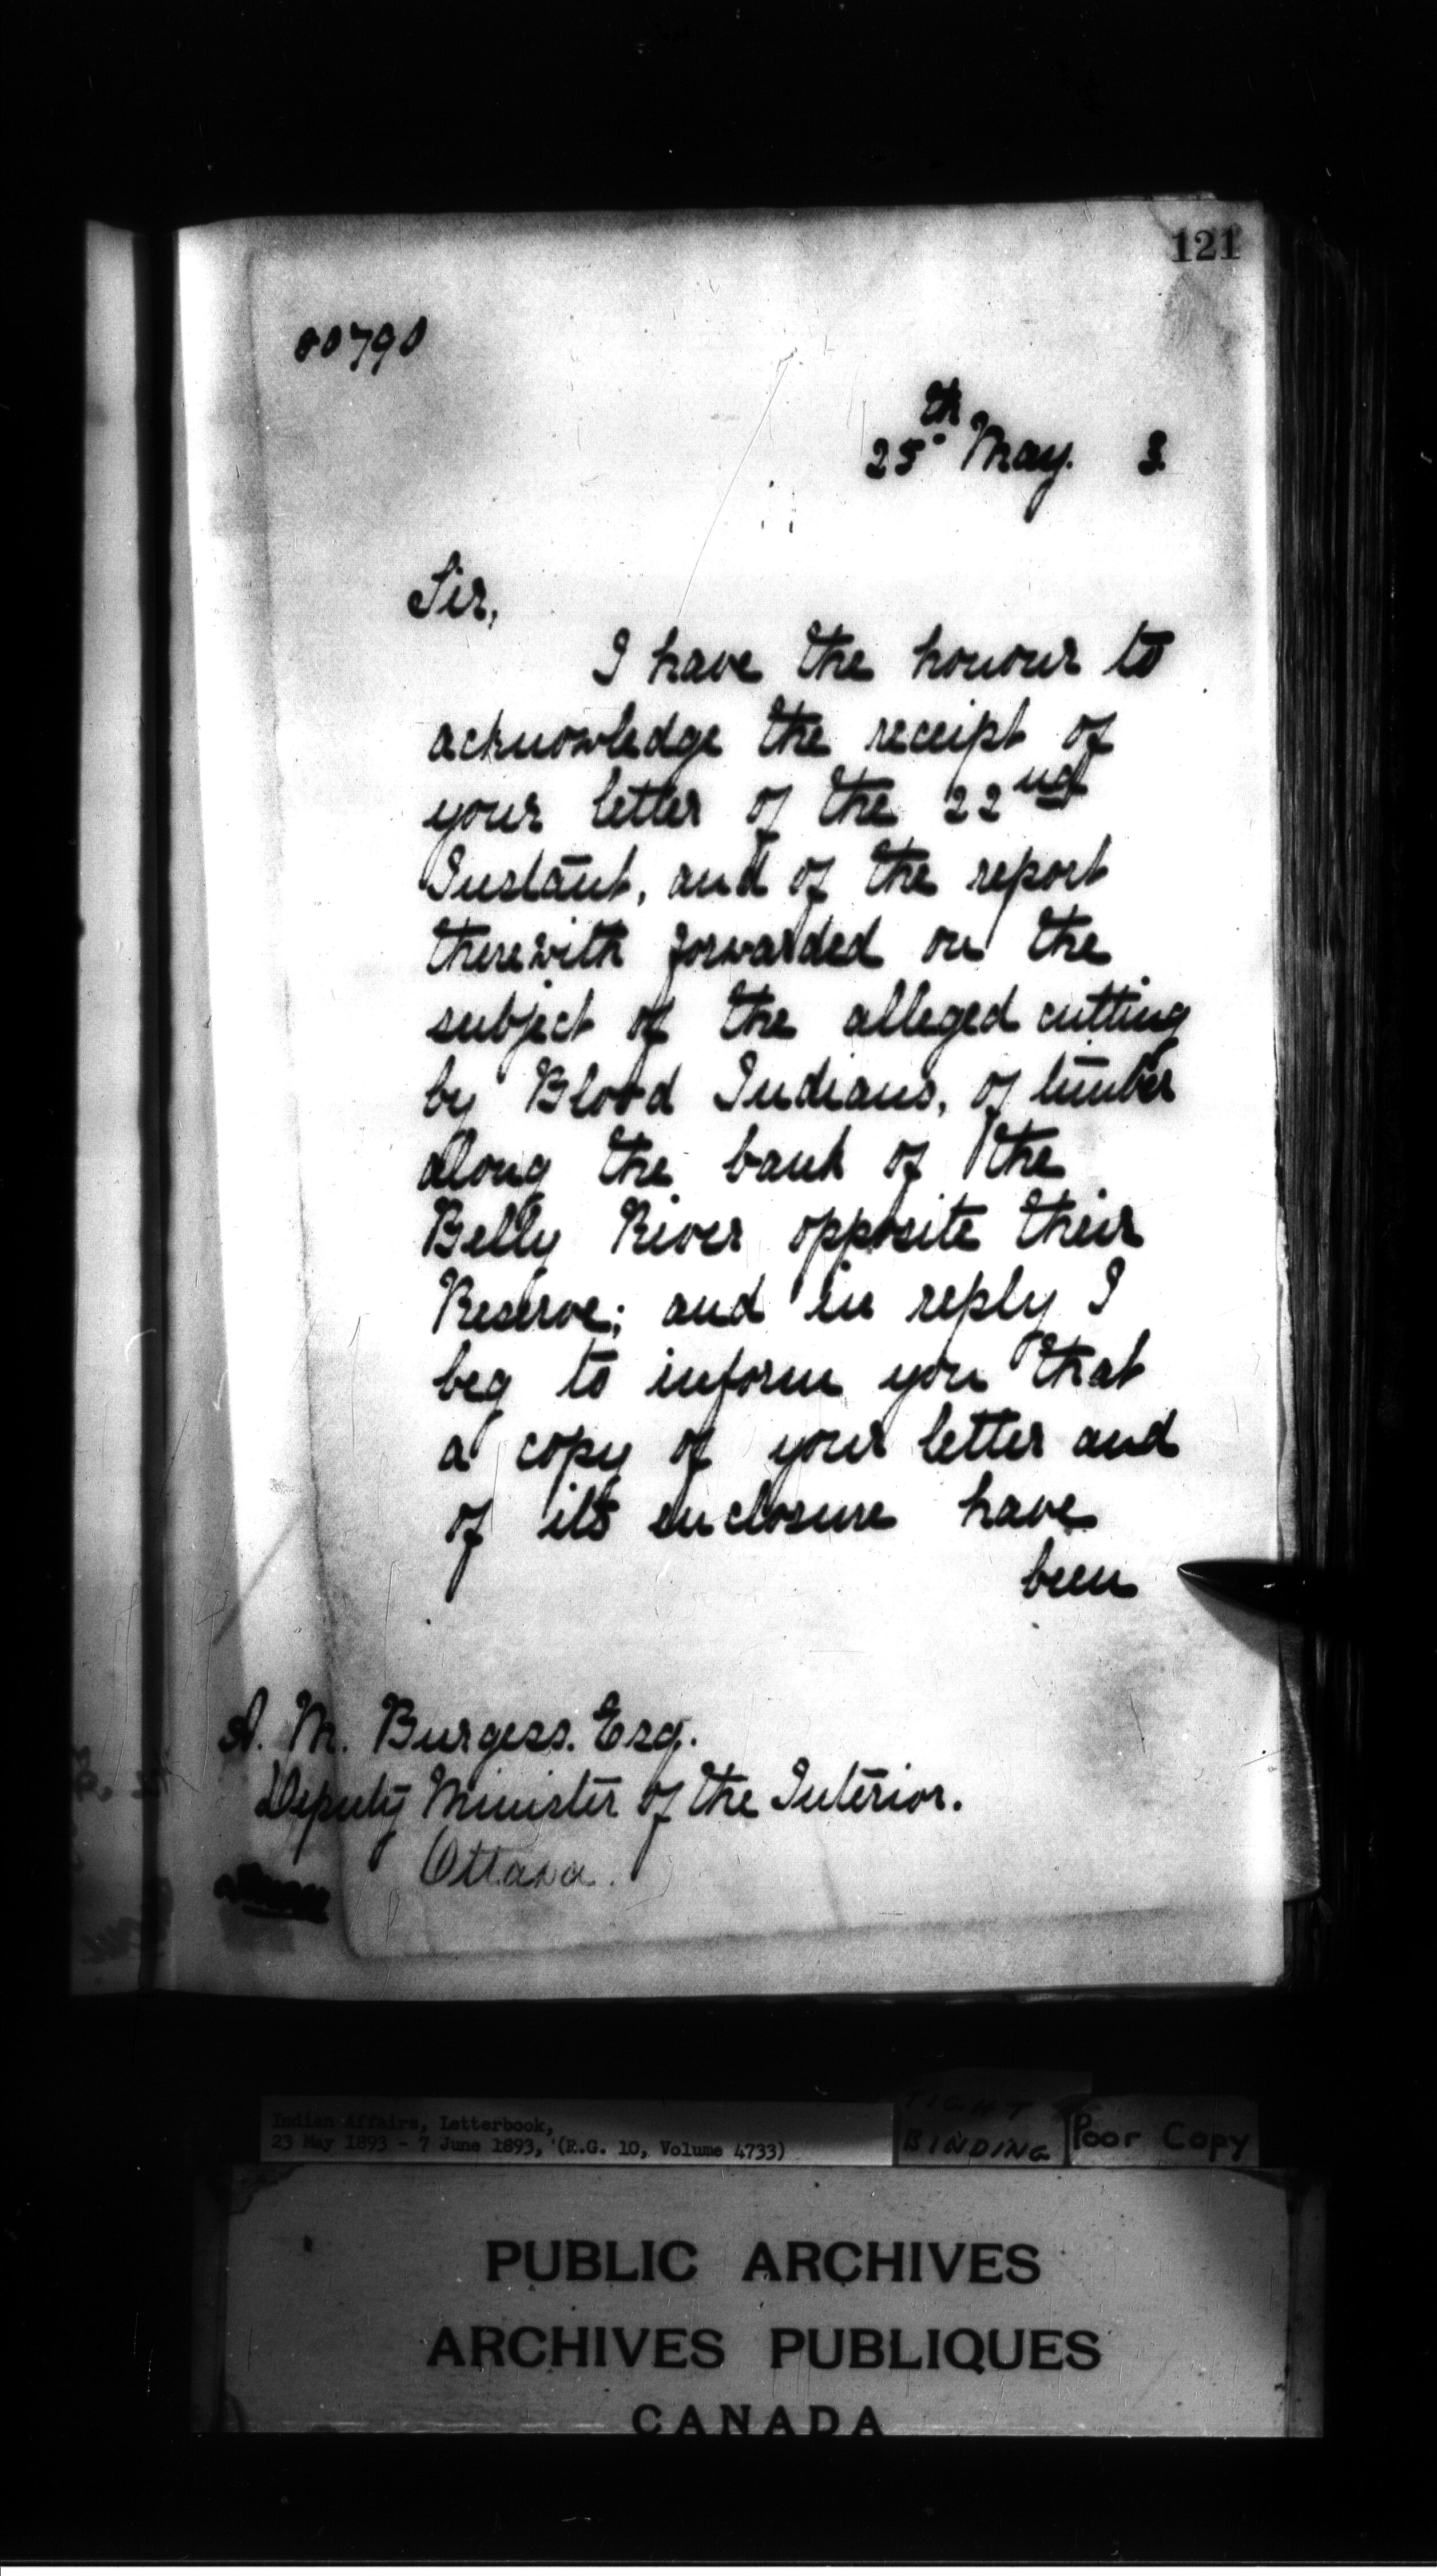 121
00790
25th May. 3.
Sir,
I have the honour to
acknowledge the receipt of
your letter of the 22nd
Instant, and of the report
therewith forwarded on the
subject of the alleged cutting
by Blood Indians, of timber
along the bank of the
Belly River opposite their
Reserve; and in reply I
beg to inform you that
a copy of your letter and
of its enclosure have
been
A. M. Burgess. Esq.
Deputy Minister of the Interior.
Ottawa.
Indian Affairs, Letterbook,
23 May 1893 - 7 June 1893, (R.G. 10, Volume 4733)
TIGHT
BINDING
Poor Copy
PUBLIC ARCHIVES
ARCHIVES PUBLIQUES
CANADA